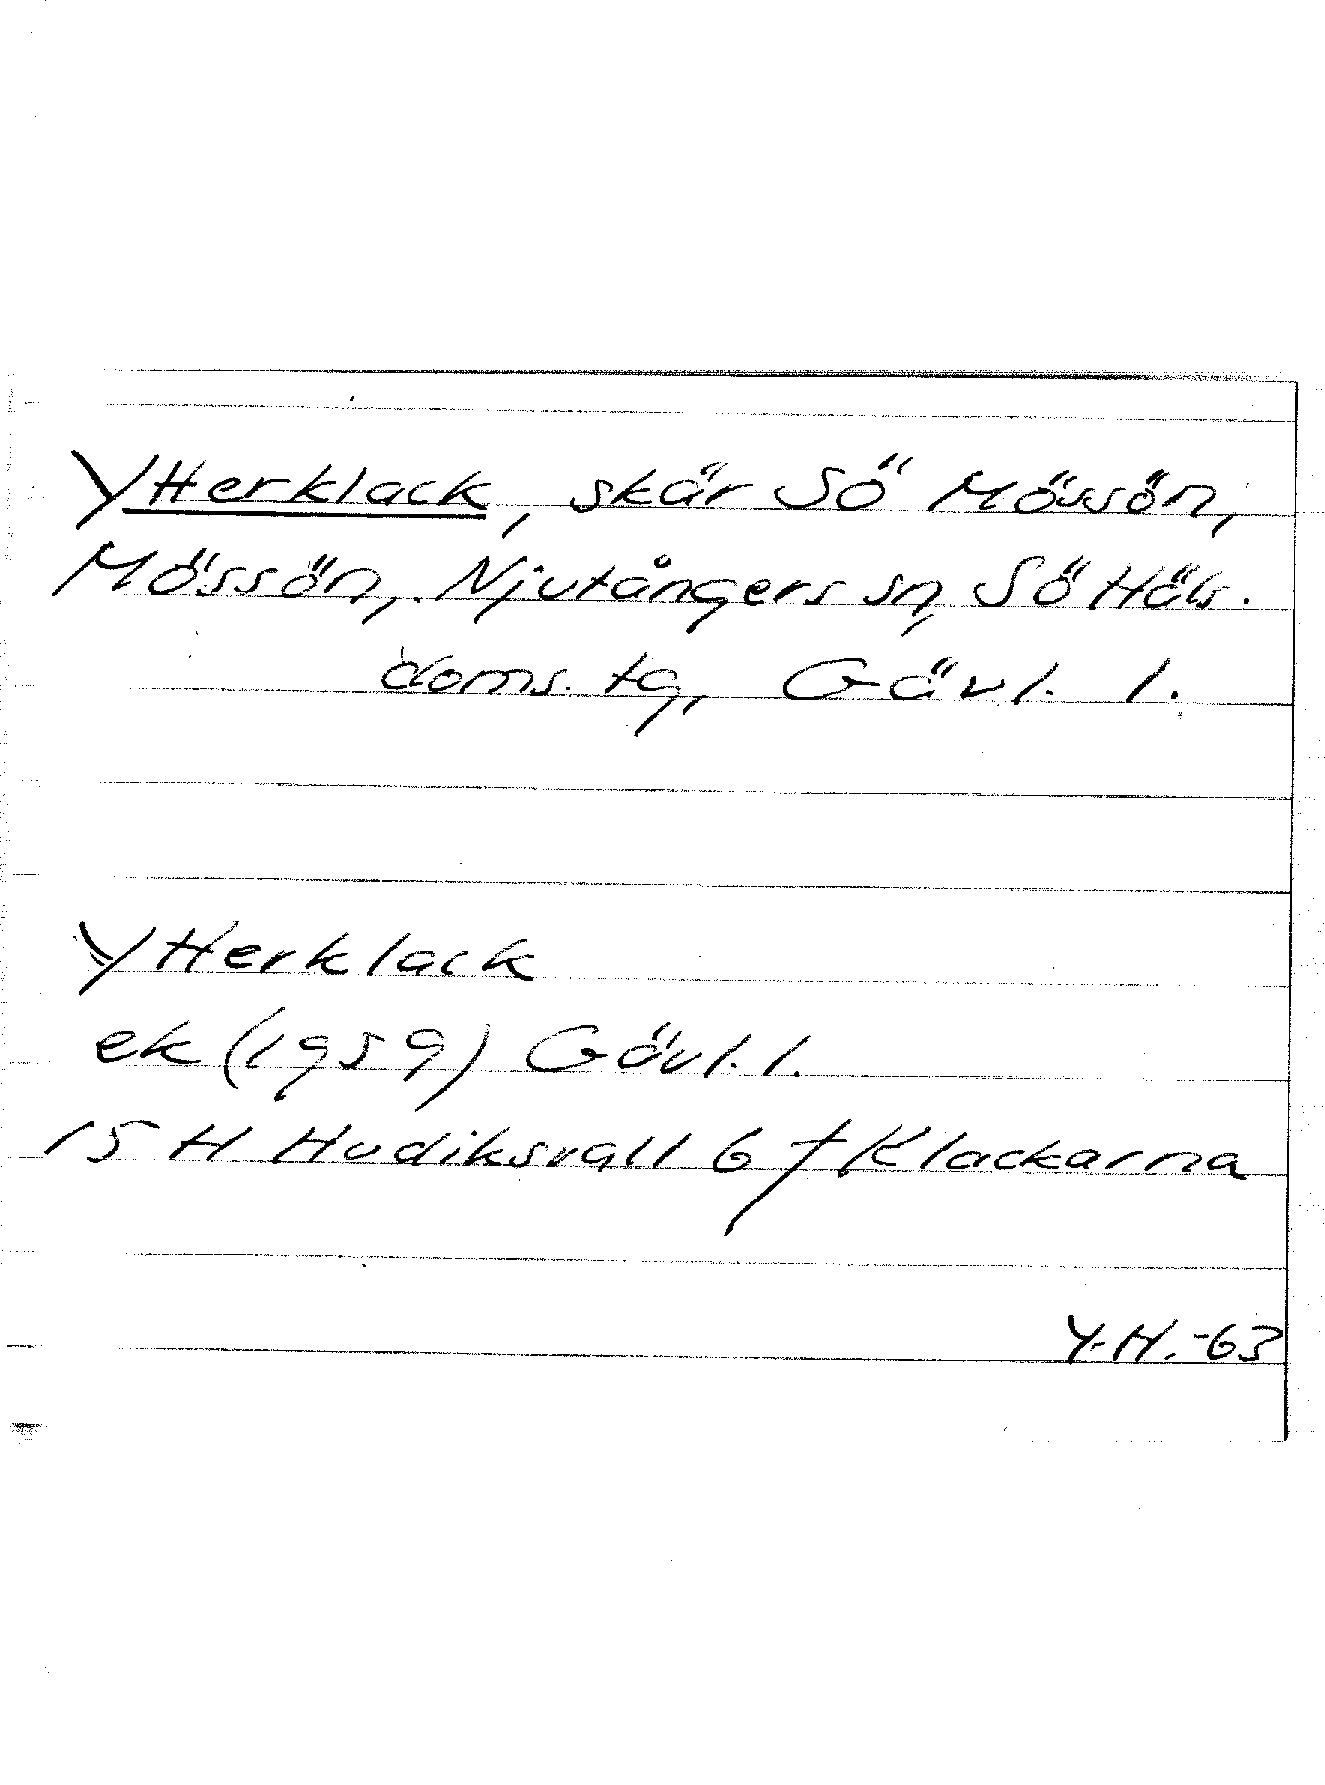 Ytterklack, skär SÖ Mössön,
Mössön, Njutångers sn, SÖ Häls.
doms. tg, Gävl. l.
Ytterklack
ek (1959) Gävl. l.
15 H Hudiksvall 6 f Klackarna
Y.H. -63